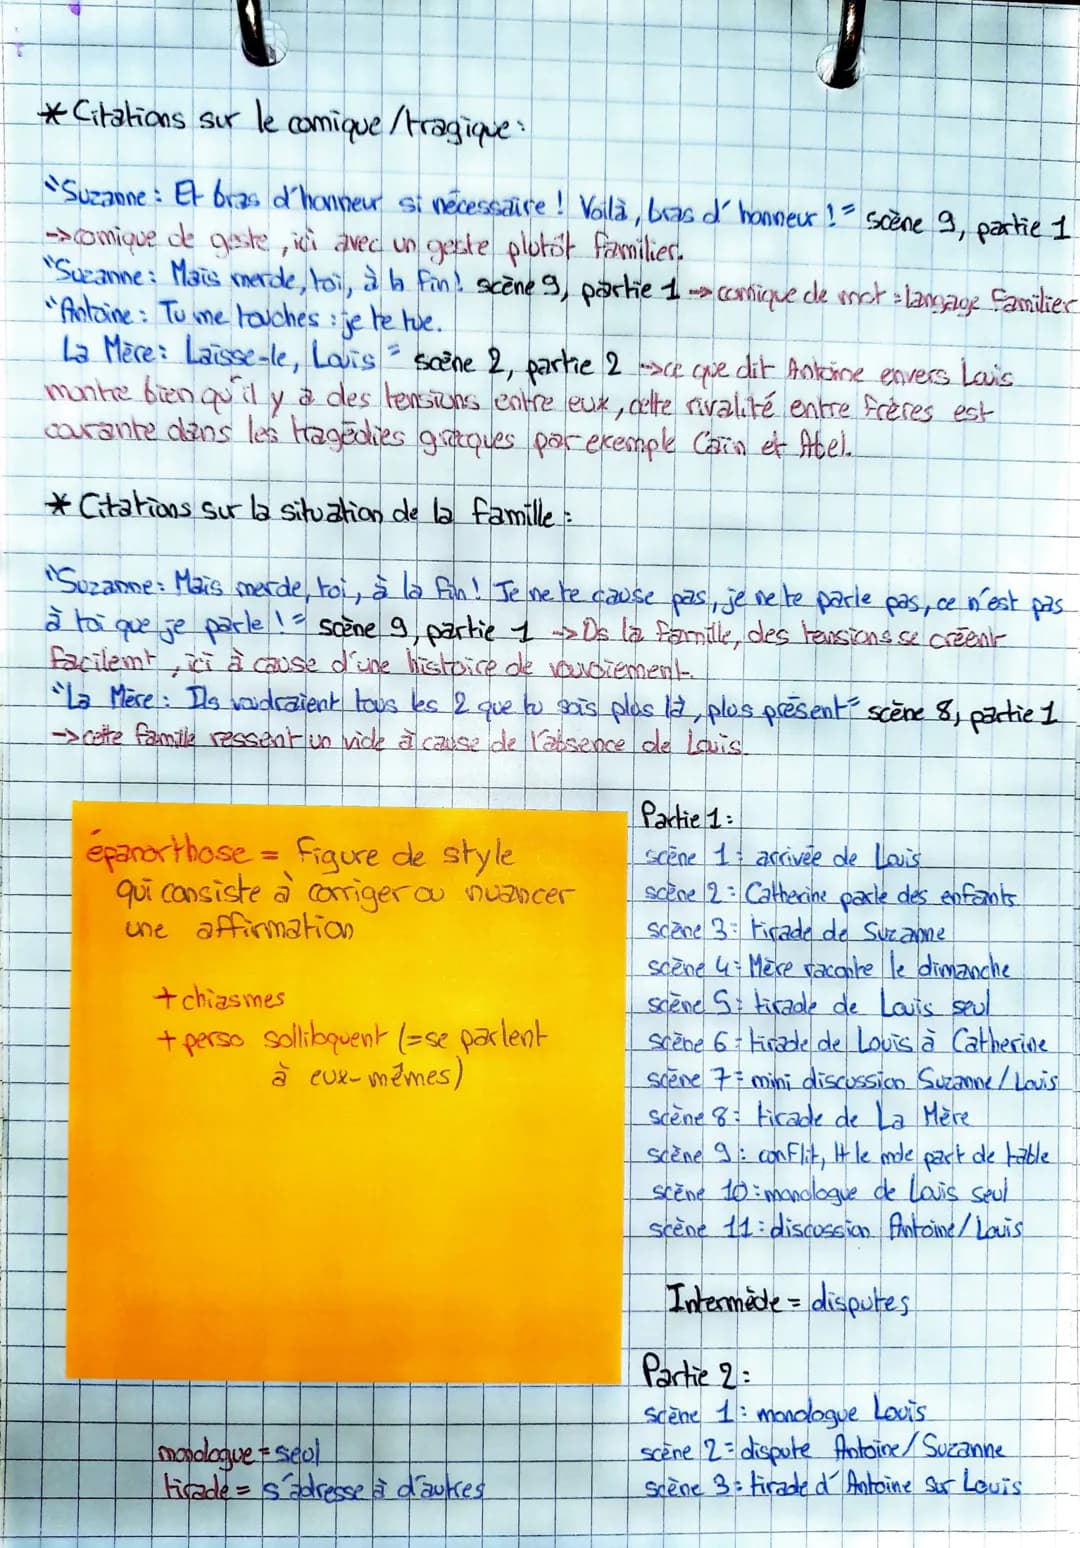 * Citations sur le comique/tragique :
"Suzanne : Et bras d'honneur si nécessaire ! Voilà, bras d'honneur ! " scène 9, partie 1
-> comique de geste, ici avec un geste plutôt familier.
"Suzanne : Mais merde, toi, à la fin ! scène 9, partie 1 -> comique de mot = langage familier
"Antoine : Tu me touches : je te tue.
La Mère : Laisse-le, Louis " scène 2, partie 2 -> ce que dit Antoine envers Louis
montre bien qu'il y a des tensions entre eux, cette rivalité entre frères est
courante dans les tragédies grecques par exemple Caïn et Abel.
* Citations sur la situation de la famille :
"Suzanne : Mais merde, toi, à la fin ! Je ne te cause pas, je ne te parle pas, ce n'est pas
à toi que je parle ! " scène 9, partie 1 -> Ds la famille, des tensions se créent
facilemt, ici à cause d'une histoire de vouvoiement.
"La Mère : Ils voudraient tous les 2 que tu sois plus là, plus présent " scène 8, partie 1
-> cette famille ressent un vide à cause de l'absence de Louis.
épanorthose = figure de style
qui consiste à corriger ou nuancer
une affirmation
+ chiasmes
+ perso solliloquent (= se parlent
à eux-mêmes)
monologue = seul
tirade = s'adresse à d'autres
Partie 1 :
scène 1 : arrivée de Louis
scène 2 : Catherine parle des enfants
scène 3 : tirade de Suzanne
scène 4 : Mère raconte le dimanche
scène 5 : tirade de Louis seul
scène 6 : tirade de Louis à Catherine
scène 7 : mini discussion Suzanne/Louis
scène 8 : tirade de La Mère
scène 9 : conflit, tt le mde part de table
scène 10 : monologue de Louis seul
scène 11 : discussion Antoine/Louis
Intermède = disputes
Partie 2 :
scène 1 : monologue Louis
scène 2 : dispute Antoine/Suzanne
scène 3 : tirade d'Antoine sur Louis